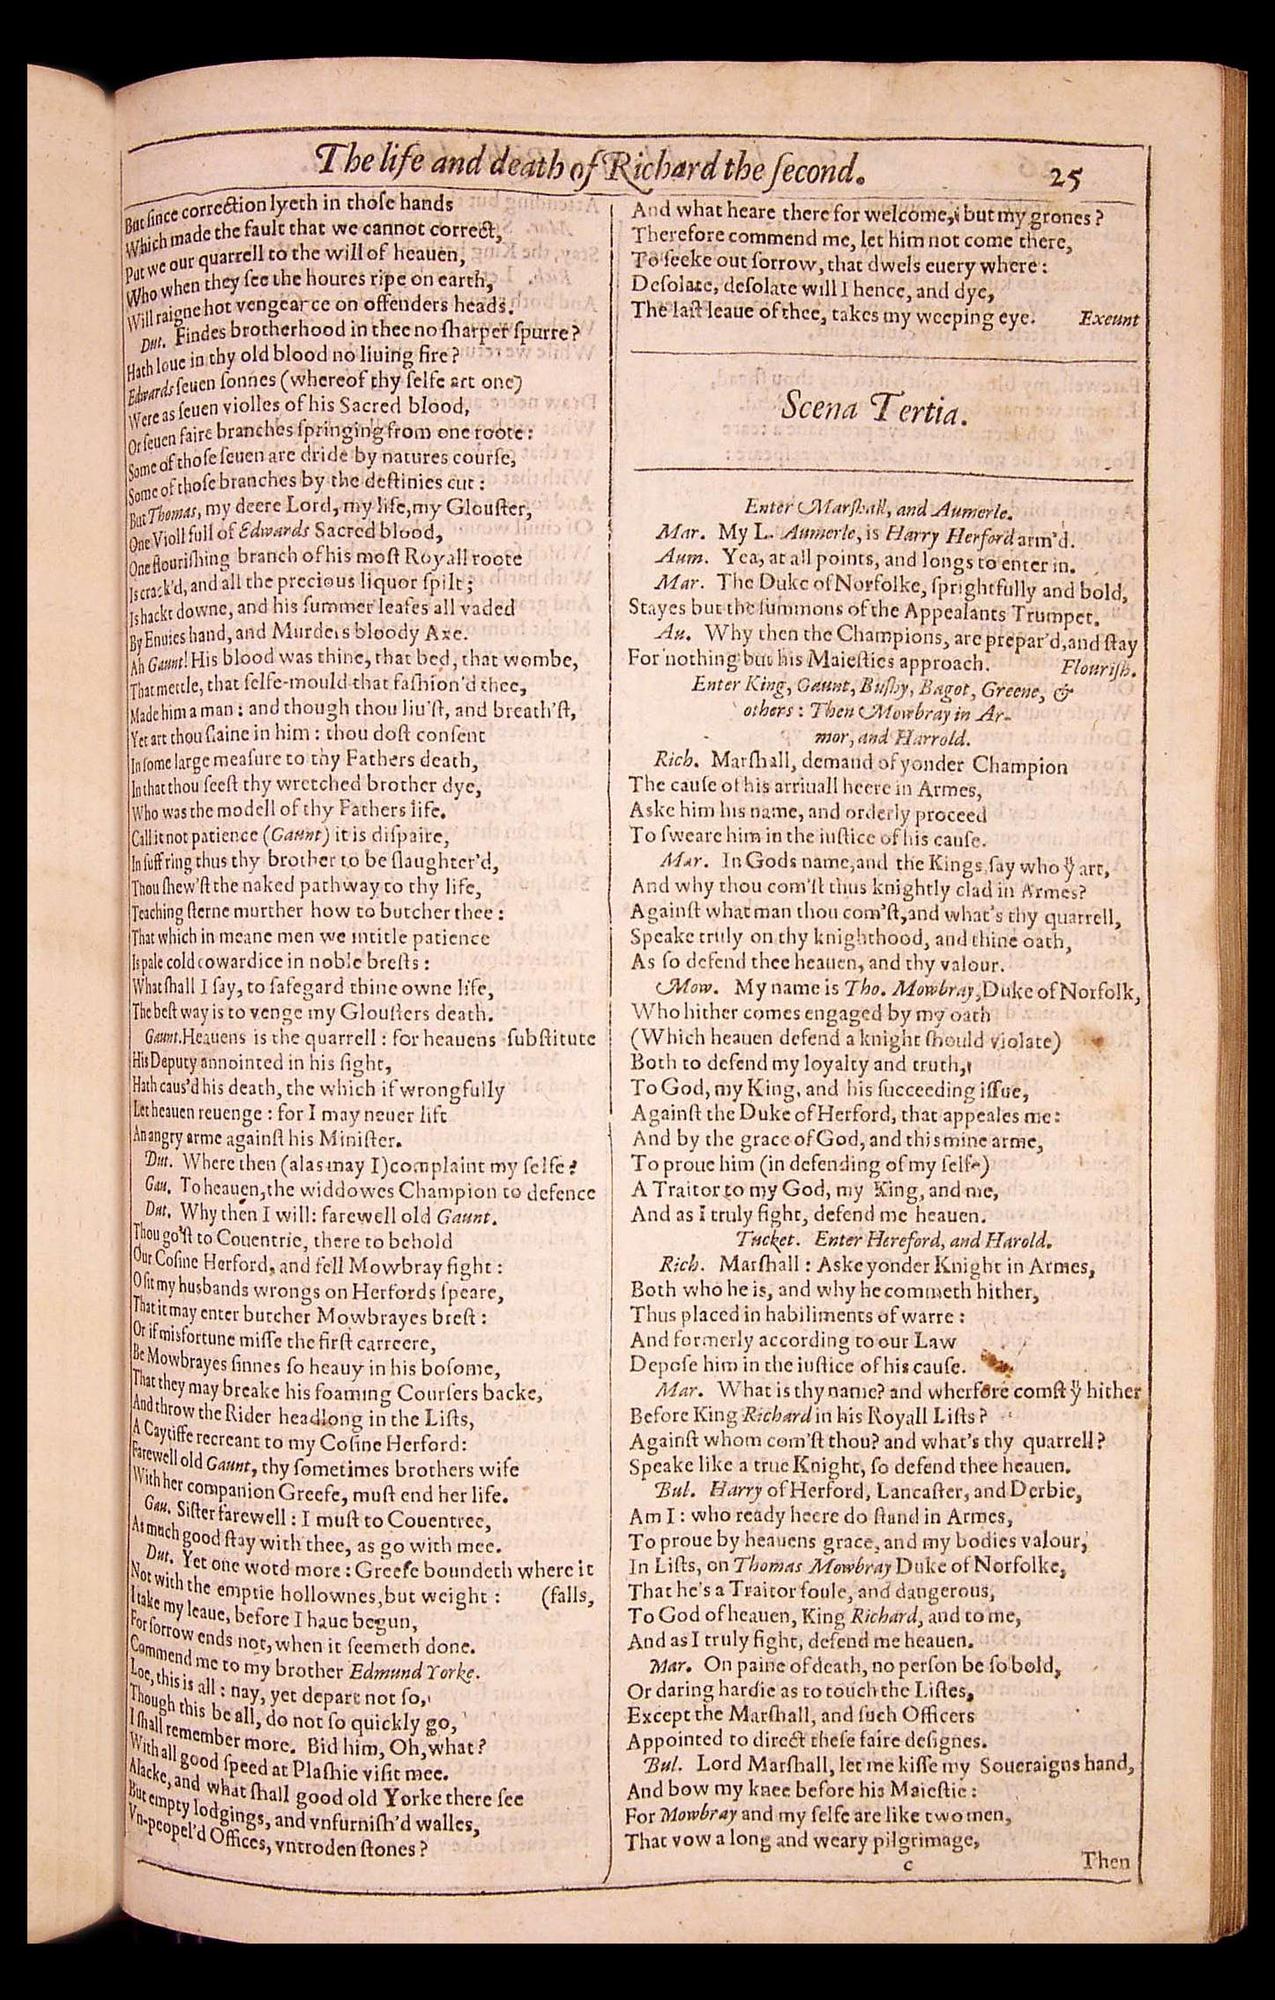 The life and death of Richard the ſecond.
25
But ſince correction lyeth in thoſe hands
Which made the fault that we cannot correct,
Put we our quarrell to the will of heauen,
Who when they ſee the houres ripe on earth,
Will raigne hot vengearce on offenders heads.
Dut. Findes brotherhood in thee no ſharper ſpurre?
Hath loue in thy old blood no liuing fire?
Edwards ſeuen ſonnes (whereof thy ſelfe art one)
Were as ſeuen violles of his Sacred blood,
Or ſeuen faire branches ſpringing from one roote:
Some of thoſe ſeuen are dride by natures courſe,
Some of thoſe branches by the deſtinies cut:
But Thomas, my deere Lord, my life, my Glouſter,
One Violl full of Edwards Sacred blood,
One flouriſhing branch of his moſt Royall roote
Is crack'd, and all the precious liquor ſpilt;
Is hackt downe, and his ſummer leafes all vaded
By Enuies hand, and Murders bloody Axe.
Ah Gaunt! His blood was thine, that bed, that wombe,
That mettle, that ſelfe-mould that faſhion'd thee,
Made him a man: and though thou liu'ſt, and breath'ſt,
Yet art thou ſlaine in him: thou doſt conſent
In ſome large meaſure to thy Fathers death,
In that thou ſeeſt thy wretched brother dye,
Who was the modell of thy Fathers life.
Call it not patience (Gaunt) it is diſpaire,
In ſuff'ring thus thy brother to be ſlaughter'd,
Thou ſhew'ſt the naked pathway to thy life,
Teaching ſterne murther how to butcher thee:
That which in meane men we intitle patience
Is pale cold cowardice in noble breſts:
What ſhall I ſay, to ſafegard thine owne life,
The beſt way is to venge my Glouſters death.
Gaunt. Heauens is the quarrell: for heauens ſubſtitute
His Deputy annointed in his ſight,
Hath caus'd his death, the which if wrongfully
Let heauen reuenge: for I may neuer lift
An angry arme againſt his Miniſter.
Dut. Where then (alas may I) complaint my ſelfe?
Gau. To heauen, the widdowes Champion to defence
Dut. Why then I will: farewell old Gaunt.
Thou go'ſt to Couentrie, there to behold
Our Coſine Herford, and fell Mowbray fight:
O ſit my husbands wrongs on Herfords ſpeare,
That it may enter butcher Mowbrayes breſt:
Or if misfortune miſſe the firſt carreere,
Be Mowbrayes ſinnes ſo heauy in his boſome,
That they may breake his foaming Courſers backe,
And throw the Rider headlong in the Liſts,
A Caytiffe recreant to my Coſine Herford:
Farewell old Gaunt, thy ſometimes brothers wife
With her companion Greefe, muſt end her life.
Gau. Siſter farewell: I muſt to Couentree,
As much good ſtay with thee, as go with mee.
Dut. Yet one word more: Greefe boundeth where it
Not with the emptie hollownes, but weight: (falls,
I take my leaue, before I haue begun,
For ſorrow ends not, when it ſeemeth done.
Commend me to my brother Edmund Yorke.
Loe, this is all: nay, yet depart not ſo,
Though this be all, do not ſo quickly go,
I ſhall remember more. Bid him, Oh, what?
With all good ſpeed at Plaſhie viſit mee.
Alacke, and what ſhall good old Yorke there ſee
But empty lodgings, and vnfurniſh'd walles,
Vn-peopel'd Offices, vntroden ſtones?
And what heare there for welcome, but my grones?
Therefore commend me, let him not come there,
To ſeeke out ſorrow, that dwels euery where:
Deſolate, deſolate will I hence, and dye,
The laſt leaue of thee, takes my weeping eye. Exeunt
Scena Tertia.
Enter Marſhall, and Aumerle.
Mar. My L. Aumerle, is Harry Herford arm'd.
Aum. Yea, at all points, and longs to enter in.
Mar. The Duke of Norfolke, ſprightfully and bold,
Stayes but the ſummons of the Appealants Trumpet.
Au. Why then the Champions, are prepar'd, and ſtay
For nothing but his Maieſties approach. Flouriſh.
Enter King, Gaunt, Buſhy, Bagot, Greene, &
others: Then Mowbray in Ar-
mor, and Harrold.
Rich. Marſhall, demand of yonder Champion
The cauſe of his arriuall heere in Armes,
Aske him his name, and orderly proceed
To ſweare him in the iuſtice of his cauſe.
Mar. In Gods name, and the Kings, ſay who yͧ art,
And why thou com'ſt thus knightly clad in Armes?
Againſt what man thou com'ſt, and what's thy quarrell,
Speake truly on thy knighthood, and thine oath,
As ſo defend thee heauen, and thy valour.
Mow. My name is Tho. Mowbray, Duke of Norfolk,
Who hither comes engaged by my oath
(Which heauen defend a knight ſhould violate)
Both to defend my loyalty and truth,
To God, my King, and his ſucceeding iſſue,
Againſt the Duke of Herford, that appeales me:
And by the grace of God, and this mine arme,
To proue him (in defending of my ſelfe)
A Traitor to my God, my King, and me,
And as I truly fight, defend me heauen.
Tucket. Enter Hereford, and Harold.
Rich. Marſhall: Aske yonder Knight in Armes,
Both who he is, and why he commeth hither,
Thus placed in habiliments of warre:
And formerly according to our Law
Depoſe him in the iuſtice of his cauſe.
Mar. What is thy name? and wherfore comſt yͧ hither
Before King Richard in his Royall Liſts?
Againſt whom com'ſt thou? and what's thy quarrell?
Speake like a true Knight, ſo defend thee heauen.
Bul. Harry of Herford, Lancaſter, and Derbie,
Am I: who ready heere do ſtand in Armes,
To proue by heauens grace, and my bodies valour,
In Liſts, on Thomas Mowbray Duke of Norfolke,
That he's a Traitor foule, and dangerous,
To God of heauen, King Richard, and to me,
And as I truly fight, defend me heauen.
Mar. On paine of death, no perſon be ſo bold,
Or daring hardie as to touch the Liſtes,
Except the Marſhall, and ſuch Officers
Appointed to direct theſe faire deſignes.
Bul. Lord Marſhall, let me kiſſe my Soueraigns hand,
And bow my knee before his Maieſtie:
For Mowbray and my ſelfe are like two men,
That vow a long and weary pilgrimage,
c
Then